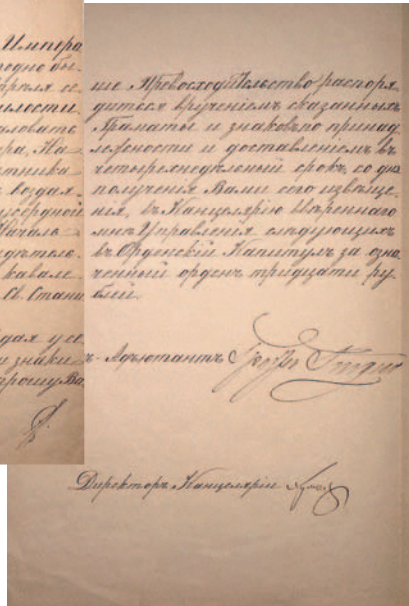 Импера
годно бы
рѣля се
милости
аловать
ра, На
тника
воздая
усердной
Началь
кавале
Св. Стани
дая у се
знаки
прошу Ва
ше Превосходительство распоря
диться врученіемъ сказанныхъ
Грамоты и знаковъ по принад
лежности и доставленіемъ въ
четырехнедѣльный срокъ, со дня
полученія Вами сего извѣще
нія, въ Канцелярію Ввѣреннаго
мнѣ Управленія слѣдующихъ
въ Орденскій Капитулъ за озна
ченный орденъ тридцати ру
блей.
ъ-Адъютантъ Графъ
Директоръ Канцеляріи